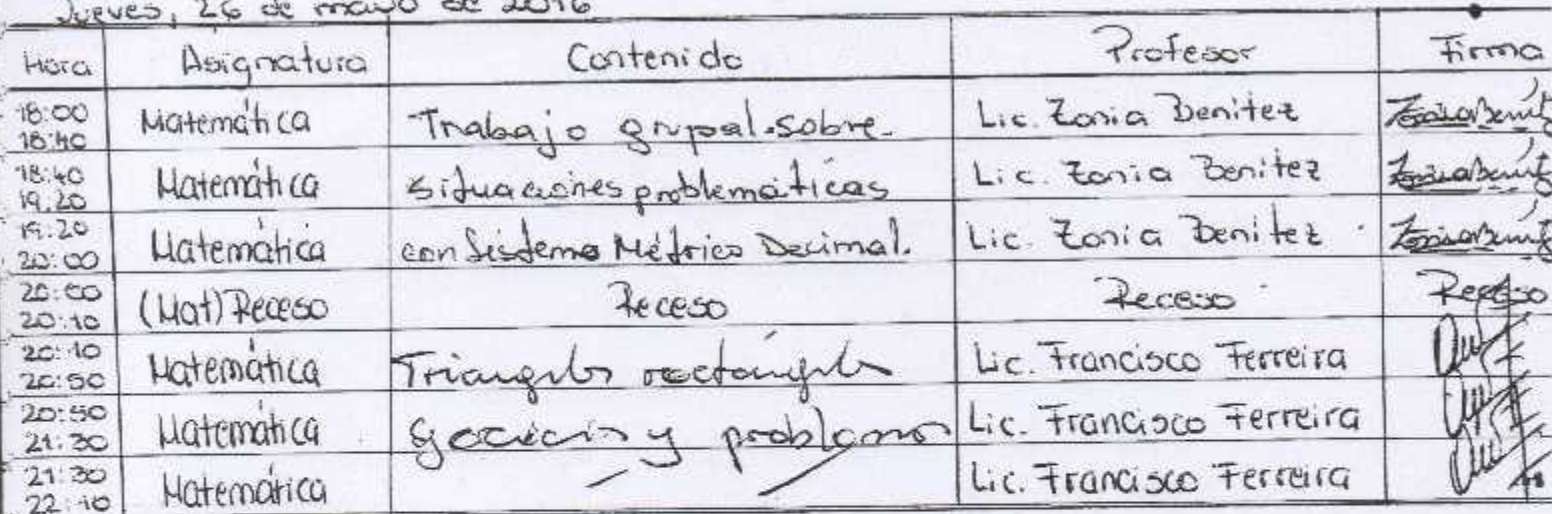 Jueves, 26 de mayo de 2016
Hora Asignatura Contenido Profesor Firma
18:00 18:40 Matemática Trabajo grupal sobre. Lic. Zonia Benitez
18:40 19.20 Matemática situaciones problemáticas Lic. Zonia Benitez
19:20 20:00 Matemática con Sistema Métrico Decimal. Lic. Zonia Benitez
20:00 20:10 (Mat) Receso Receso Receso Receso
20:10 20:50 Matemática Triangulo rectángulo Lic. Francisco Ferreira
20:50 21:30 Matemática y problemas Lic. Francisco Ferreira
21:30 22:10 Matemática Lic. Francisco Ferreira